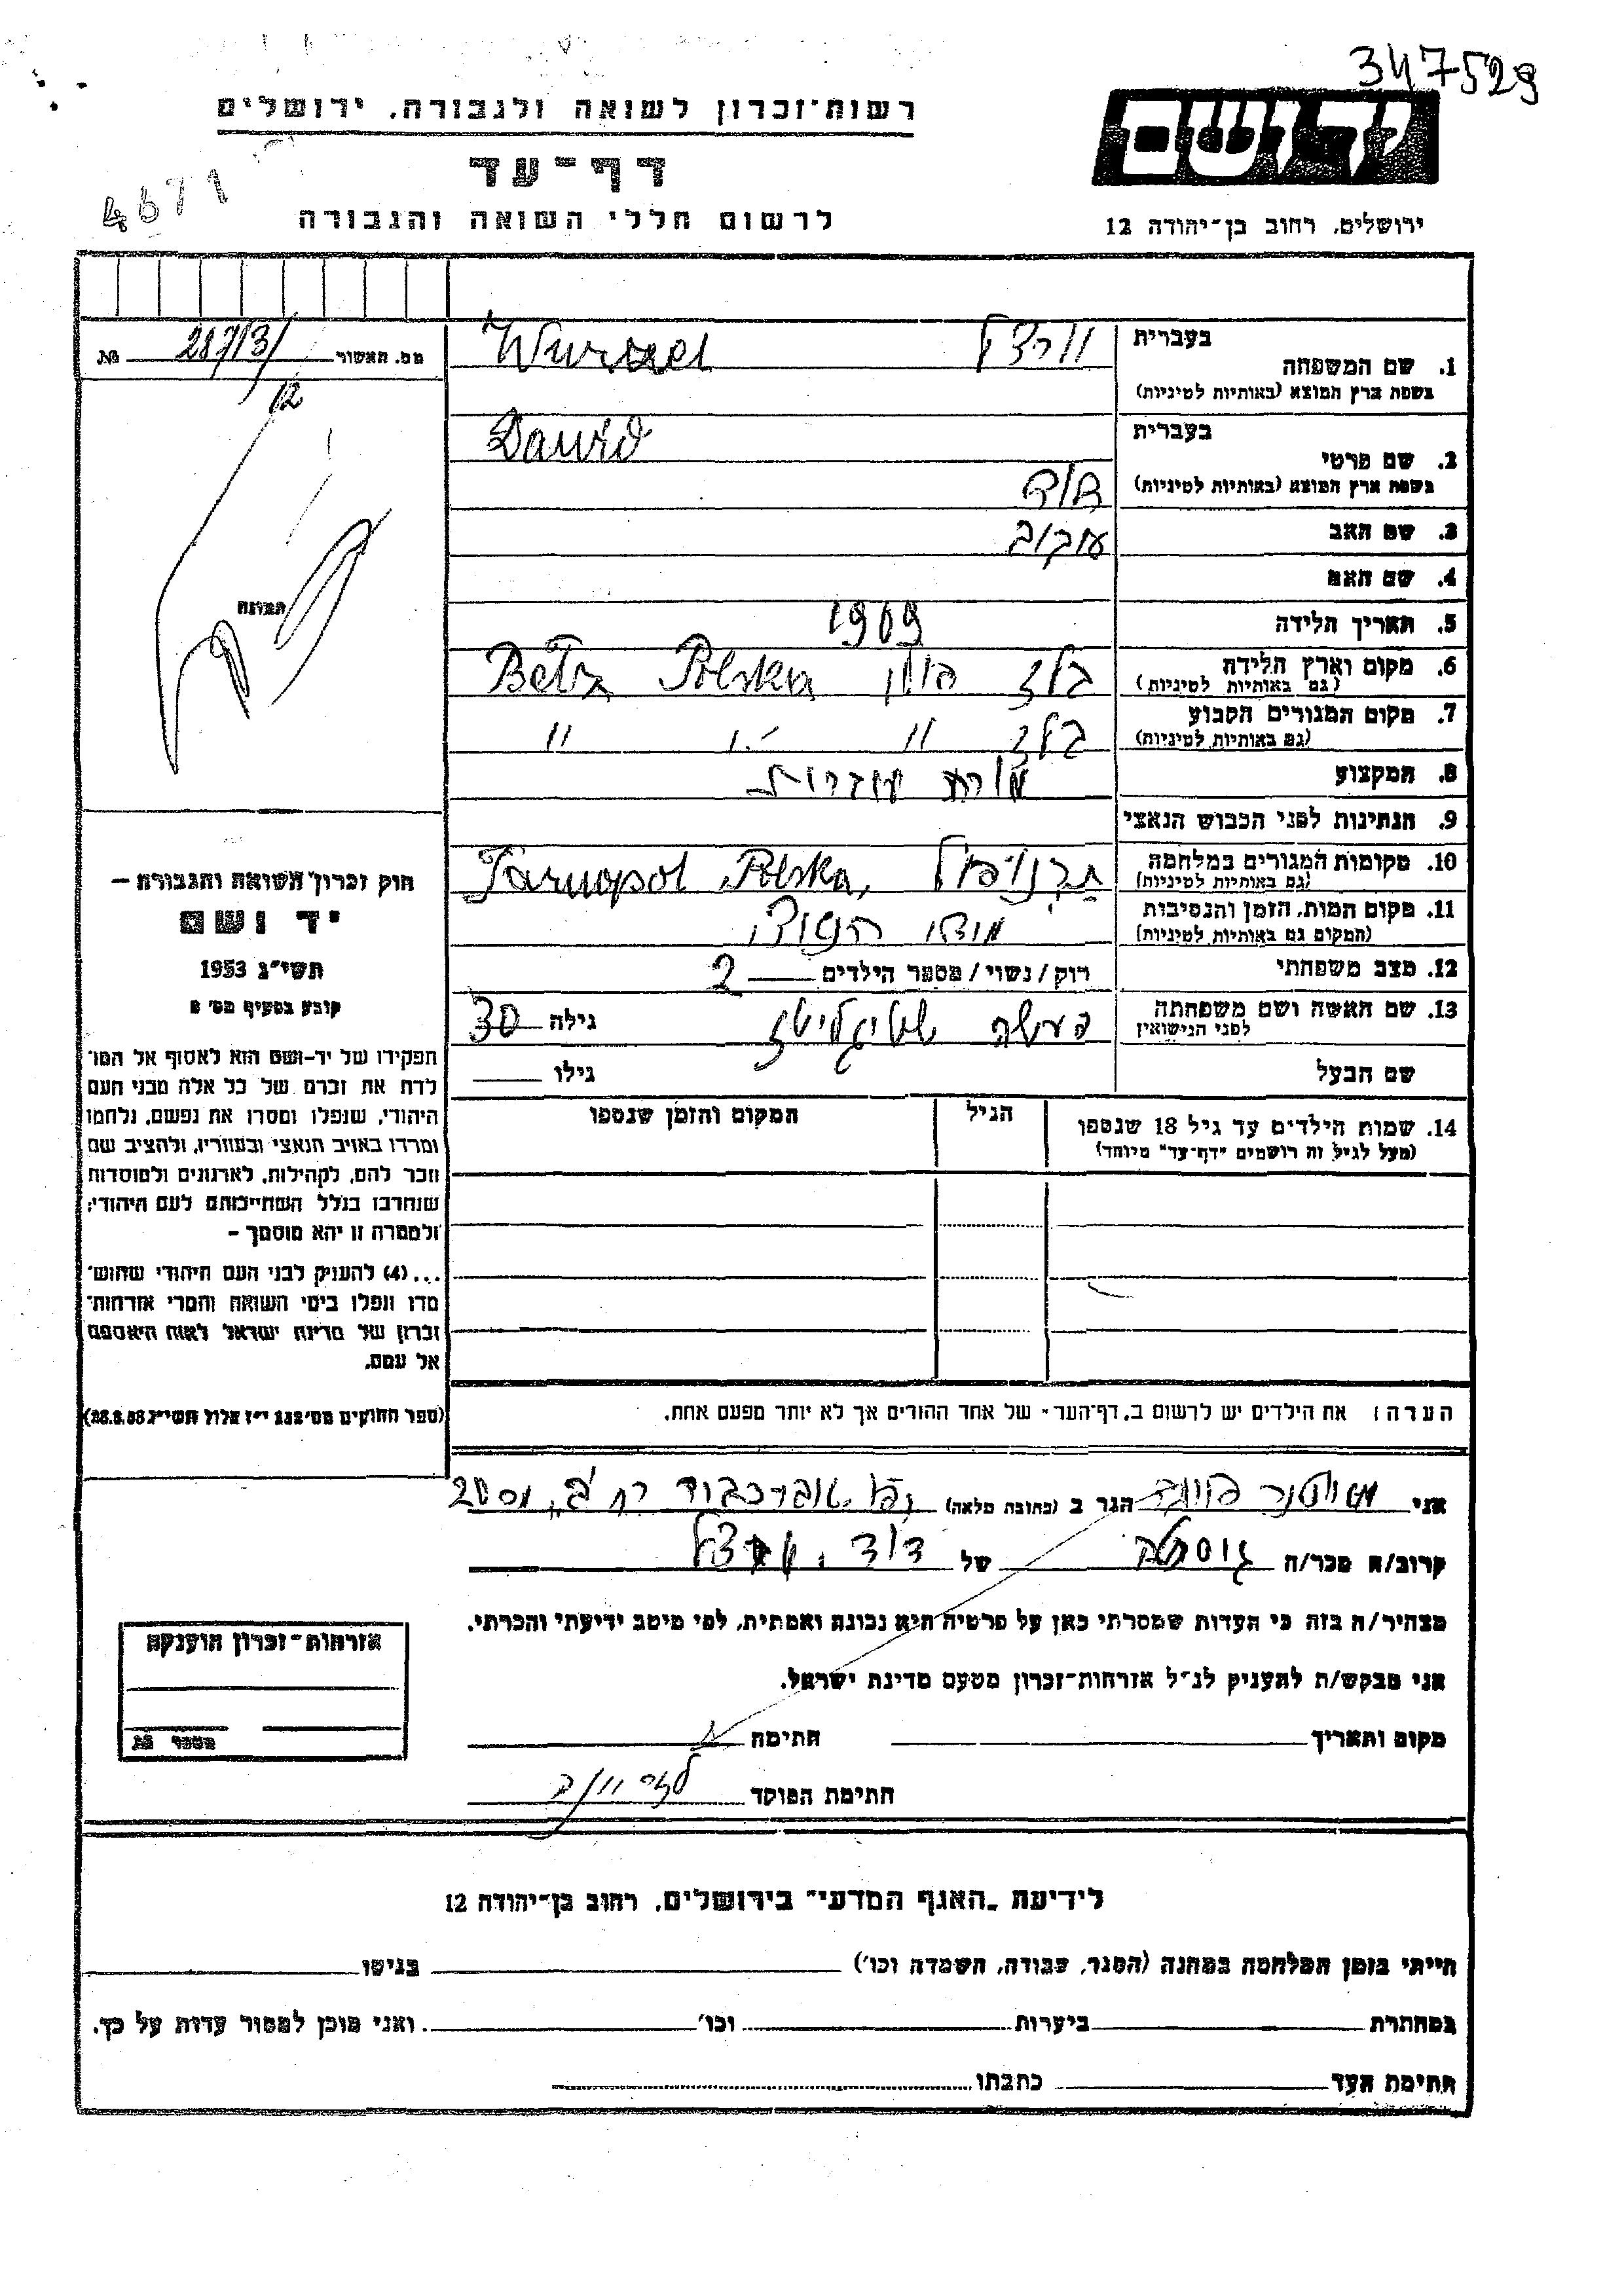 347529
רשות־זכרון לשואה ולגבורה, ירושלים
יד ושם
דף־עד
4671
לרשום חללי השואה והגבורה
ירושלים, רחוב בן־יהודה 12
בעברית
1. שם המשפחה
בשפת ארץ המוצא (באותיות לטיניות)
וורצל Wurzel
מס. האשור 287/3/
12
בעברית
2. שם פרטי
בשפת ארץ המוצא (באותיות לטיניות)
Dawid
דוד
3. שם האב יעקוב
4. שם האם
5. תאריך הלידה 1909
6. מקום וארץ הלידה
(גם באותיות לטיניות)
בלז פולין Polska Bełz
7. מקום המגורים הקבוע
(גם באותיות לטיניות)
בלז " " "
8. המקצוע
9. הנתינות לפני הכבוש הנאצי
10. מקומות המגורים במלחמה
(גם באותיות לטיניות)
טרנופול Tarnopol Polska,
11. מקום המות, הזמן והנסיבות
(המקום גם באותיות לטיניות)
12. מצב משפחתי רוק/נשוי/מספר הילדים 2
13. שם האשה ושם משפחתה
לפני הנישואין
גילה 30
שם הבעל גילו
14. שמות הילדים עד גיל 18 שנספו
(מעל לגיל זה רושמים "דף־עד" מיוחד)
הגיל
המקום והזמן שנספו
הערה: את הילדים יש לרשום ב„דף־העד" של אחד ההורים אך לא יותר מפעם אחת.
תמונה
חוק זכרון השואה והגבורה –
יד ושם
תשי"ג 1953
קובע בסעיף מס' 2
תפקידו של יד-ושם הוא לאסוף אל המו־
לדת את זכרם של כל אלה מבני העם
היהודי, שנפלו ומסרו את נפשם, נלחמו
ומרדו באויב הנאצי ובעוזריו, ולהציב שם
וזכר להם, לקהילות, לארגונים ולמוסדות
שנחרבו בגלל השתייכותם לעם היהודי;
ולמטרה זו יהא מוסמך –
...(4) להעניק לבני העם היהודי שהוש־
מדו ונפלו בימי השואה והמרי אזרחות־
זכרון של מדינת ישראל לאות היאספם
אל עמם.
(ספר החוקים מס' 132 י"ז אלול תשי"ג 28.8.53)
אני הגר ב (כתובת מלאה)
קרוב/ה מכר/ה של דוד וורצל
מצהיר/ה בזה כי העדות שמסרתי כאן על פרטיה היא נכונה ואמתית, לפי מיטב ידיעתי והכרתי.
אני מבקש/ת להעניק לנ"ל אזרחות־זכרון מטעם מדינת ישראל.
מקום ותאריך חתימה
חתימת הפוקד
אזרחות־זכרון הוענקה
מספר №
לידיעת „האגף המדעי" בירושלים, רחוב בן־יהודה 12
הייתי בזמן המלחמה במחנה (הסגר, עבודה, השמדה וכו') בגיטו
במחתרת ביערות וכו' ואני מוכן למסור עדות על כך.
חתימת העד כתבתו